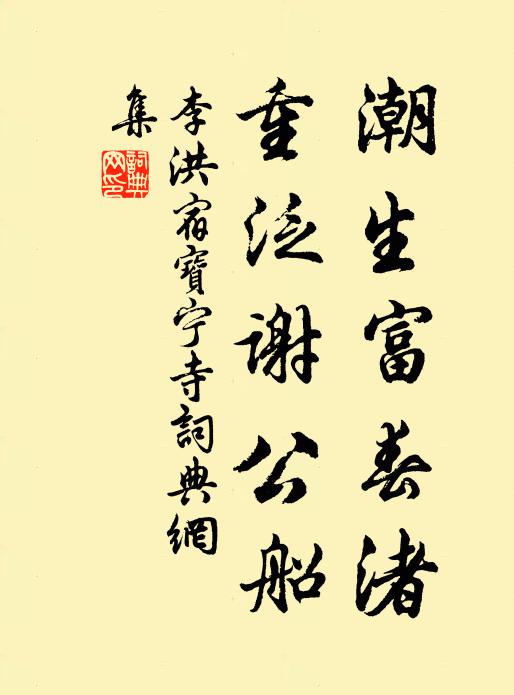 潮生富春渚
重泛谢公船
李洪宿寶宁寺詞典網
集
詞典网印